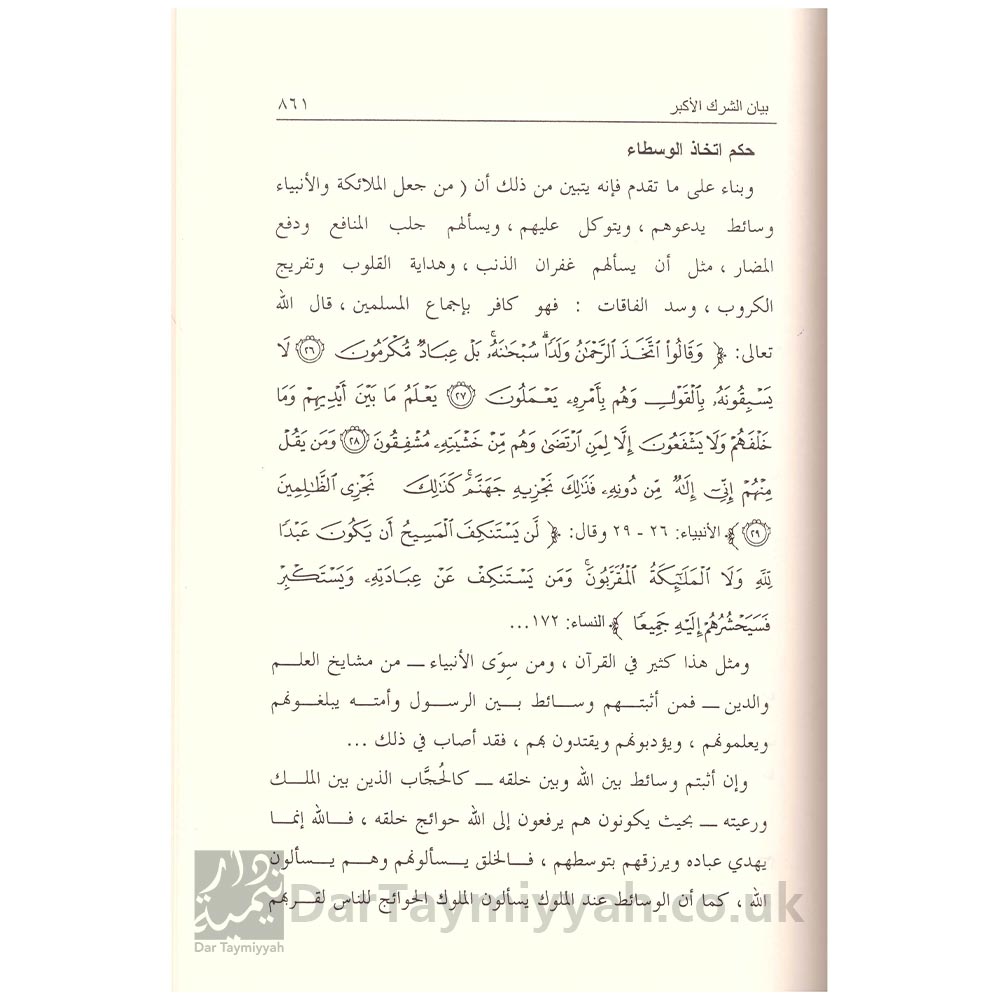 بيان الشرك الأكبر ٨٦١
حكم اتخاذ الوسطاء
وبناء على ما تقدم فإنه يتبين من ذلك أن ( من جعل الملائكة والأنبياء
وسائط يدعوهم ، ويتوكل عليهم ، ويسألهم جلب المنافع ودفع
المضار ، مثل أن يسألهم غفران الذنب ، وهداية القلوب وتفريج
الكروب ، وسد الفاقات : فهو كافر بإجماع المسلمين ، قال الله
تعالى: ﴿ وَقَالُوا۟ ٱتَّخَذَ ٱلرَّحْمَٰنُ وَلَدًا ۗ سُبْحَٰنَهُۥ ۚ بَلْ عِبَادٌ مُّكْرَمُونَ ﴿٢٦﴾ لَا
يَسْبِقُونَهُۥ بِٱلْقَوْلِ وَهُم بِأَمْرِهِۦ يَعْمَلُونَ ﴿٢٧﴾ يَعْلَمُ مَا بَيْنَ أَيْدِيهِمْ وَمَا
خَلْفَهُمْ وَلَا يَشْفَعُونَ إِلَّا لِمَنِ ٱرْتَضَىٰ وَهُم مِّنْ خَشْيَتِهِۦ مُشْفِقُونَ ﴿٢٨﴾ وَمَن يَقُلْ
مِنْهُمْ إِنِّىٓ إِلَٰهٌ مِّن دُونِهِۦ فَذَٰلِكَ نَجْزِيهِ جَهَنَّمَ ۚ كَذَٰلِكَ نَجْزِى ٱلظَّٰلِمِينَ
﴿٢٩﴾ ﴾ الأنبياء: ٢٦ - ٢٩ وقال: ﴿ لَّن يَسْتَنكِفَ ٱلْمَسِيحُ أَن يَكُونَ عَبْدًا
لِّلَّهِ وَلَا ٱلْمَلَٰٓئِكَةُ ٱلْمُقَرَّبُونَ ۚ وَمَن يَسْتَنكِفْ عَنْ عِبَادَتِهِۦ وَيَسْتَكْبِرْ
فَسَيَحْشُرُهُمْ إِلَيْهِ جَمِيعًا ﴾ النساء: ١٧٢...
ومثل هذا كثير في القرآن ، ومن سِوَى الأنبياء ــ من مشايخ العلم
والدين ــ فمن أثبتهم وسائط بين الرسول وأمته يبلغونهم
ويعلمونهم ، ويؤدبونهم ويقتدون بهم ، فقد أصاب في ذلك ...
وإن أثبتم وسائط بين الله وبين خلقه ــ كالحُجَّاب الذين بين الملك
ورعيته ــ بحيث يكونون هم يرفعون إلى الله حوائج خلقه ، فالله إنما
يهدي عباده ويرزقهم بتوسطهم ، فالخلق يسألونهم وهم يسألون
الله ، كما أن الوسائط عند الملوك يسألون الملوك الحوائج للناس لقربهم
دار تيمية
Dar Taymiyyah
DarTaymiyyah.co.uk